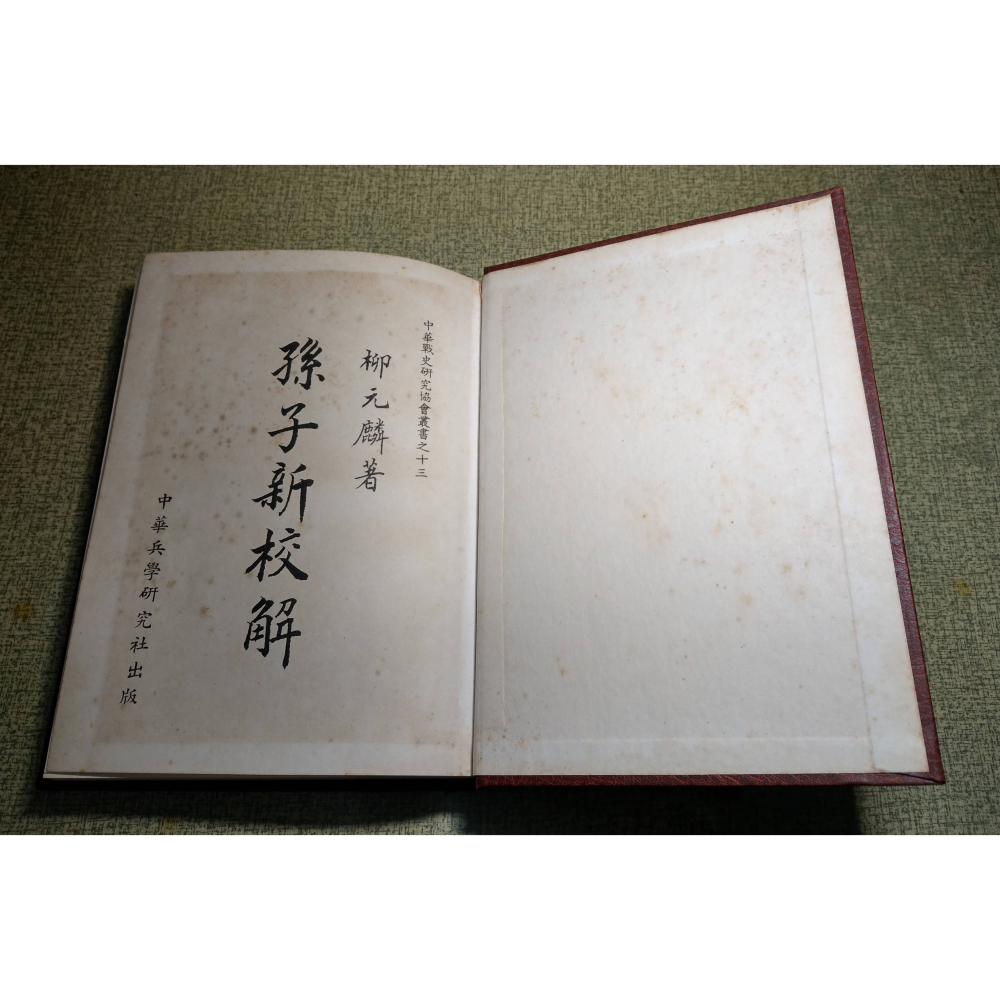 中華戰史研究協會叢書之十三
柳元麟著
孫子新校解
中華兵學研究社出版